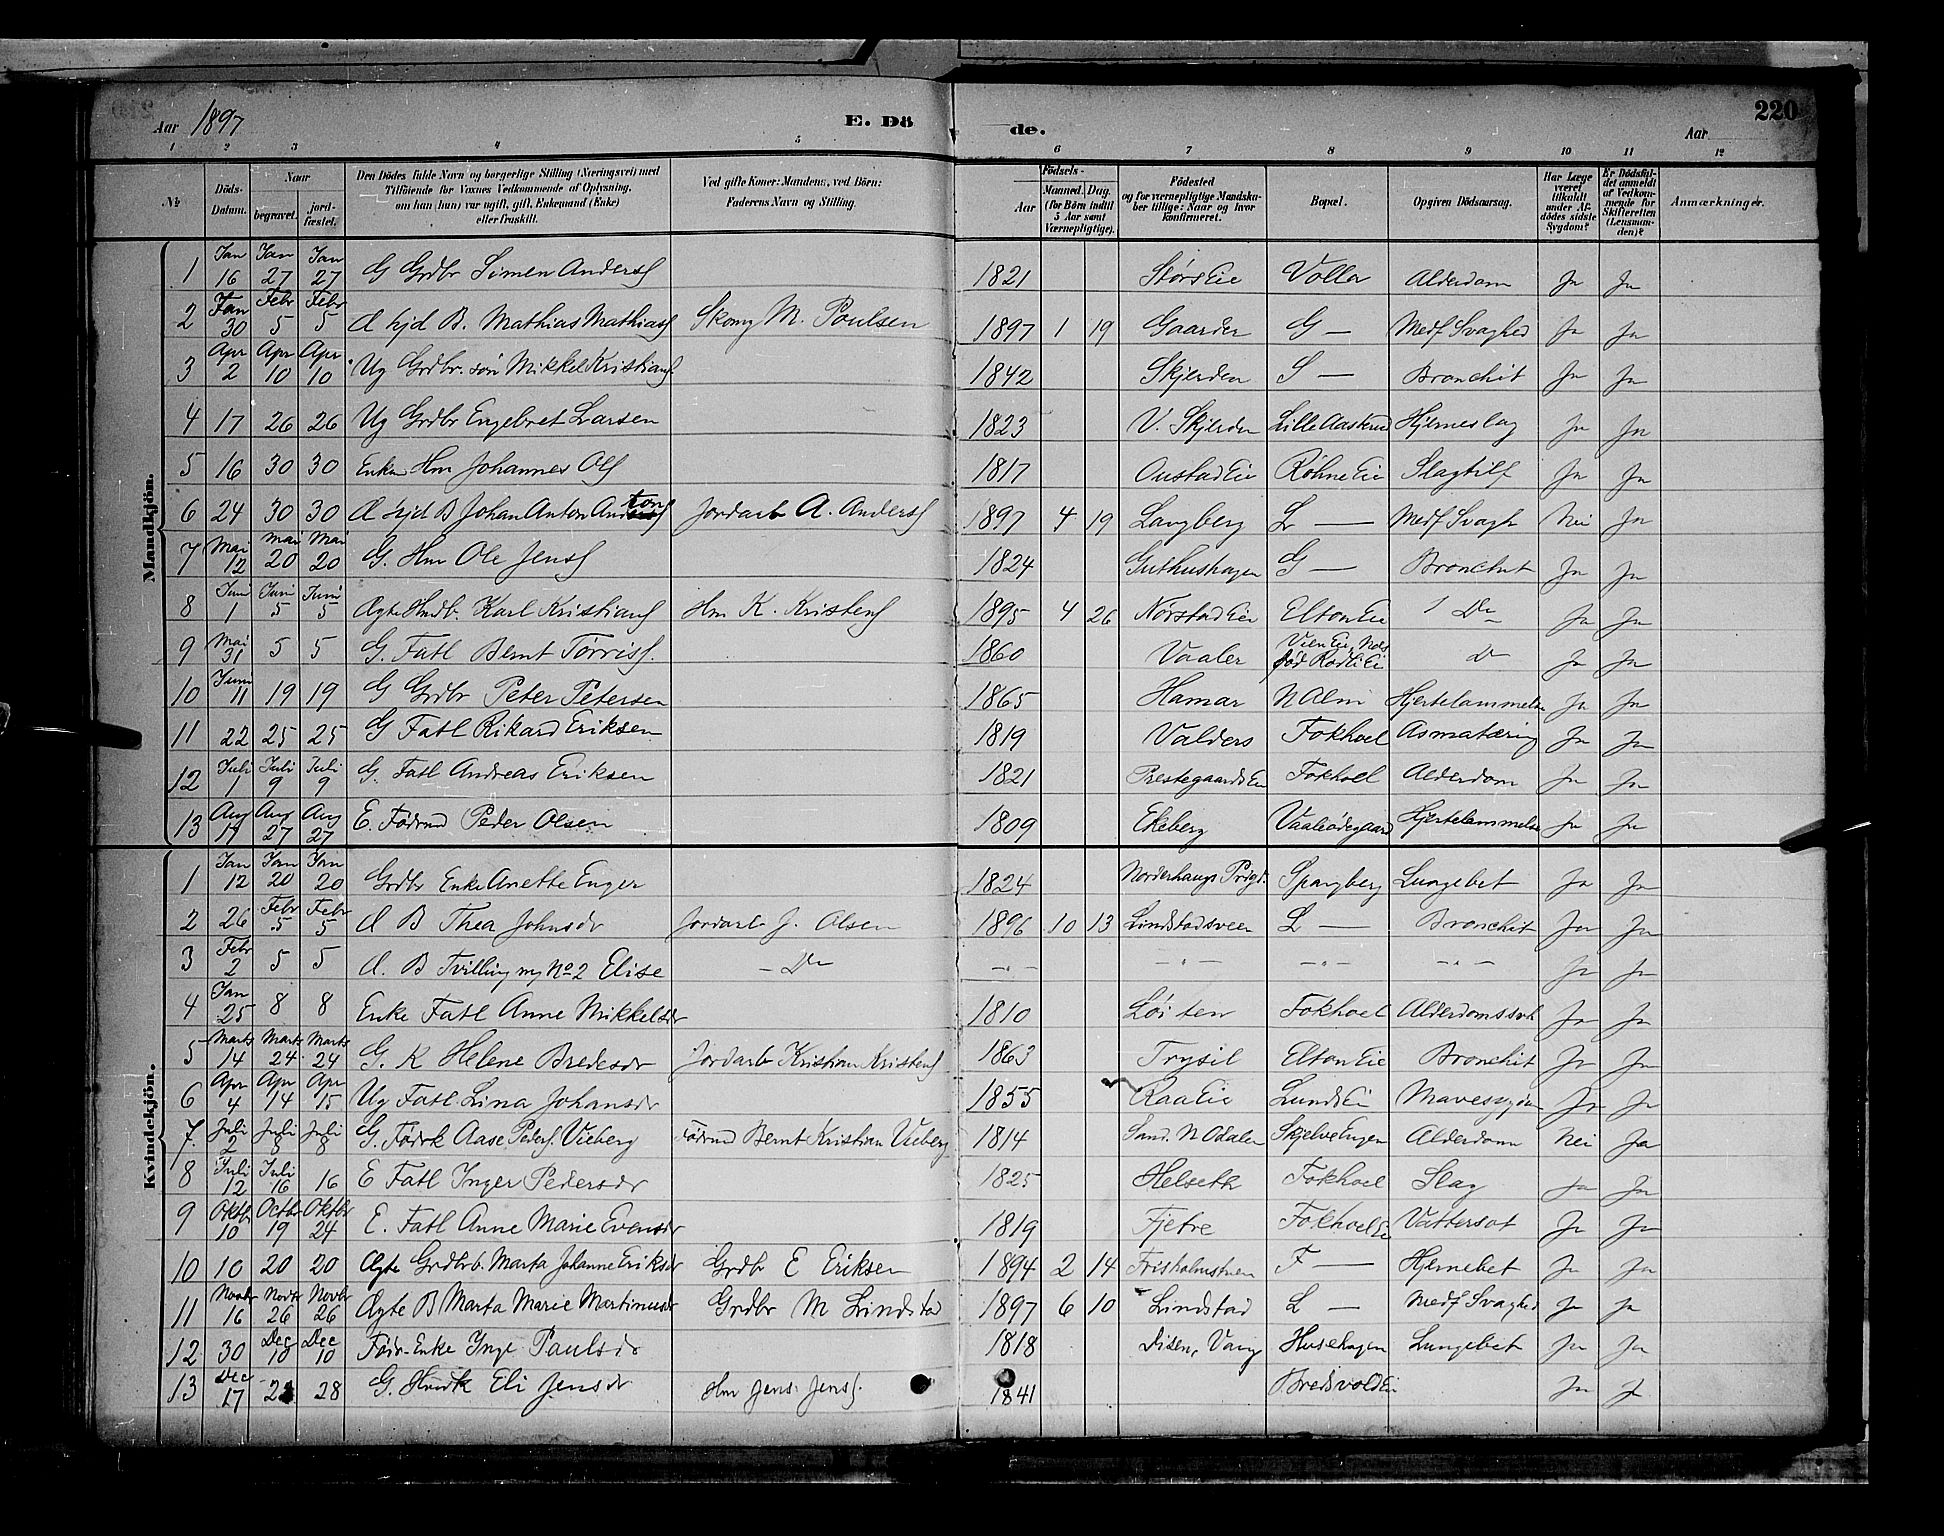 Aar 1897
E. Dö
de.
Aar
220
1 2 3 4 5 6 7 8 9 10 11 12
No
Döds-Datum.
Naar
begravet.
jord-fæstet.
Den Dödes fulde Navn og borgerlige Stilling (Næringsvei) med
Tilföiende for Voxnes Vedkommende af Oplysning,
om han (hun) var ugift, gift, Enkemand (Enke)
eller fraskilt.
Ved gifte Koner: Mandens, ved Börn:
Faderens Navn og Stilling.
Födsels-
Aar
Maaned. Dag.
(for Börn indtil
5 Aar samt
Værnepligtige).
Födested
og for værnepligtige Mandska-
ber tillige: Naar og hvor
konfirmeret.
Bopæl.
Opgiven Dödsaarsag.
Har Læge
været
tilkaldt
under Af-
dödes sidste
Sygdom?
Er Dödsfal-
det anmeldt
af Vedkom-
mende for
Skifteretten
(Lensman-
den)?
Anmærkninger.
Mandkjön.
1 Jan 16 Jan 27 Jan 27 G Grdbr Simen Anders 1821 Størs Eie Volla Alderdom Ja Ja
2 Jan 30 Febr 5 Febr 5 Mathias Mathias Skomg M. Poulsen 1897 1 19 Gaarder G — Medf Svaghed Ja Ja
3 Apr 2 Apr 10 Apr 10 Ug Grdbr. søn Mikkel Kristians 1842 Skjerden S — Bronchit Ja Ja
4 17 26 26 Ug Grdbr Engebret Larsen 1823 V. Skjerden Lille Aasterud Hjerneslag Ja Ja
5 16 30 30 Enkem Hm Johannes Ols 1817 Oustad Eie Røhne Eie Slagtilf Ja Ja
6 24 30 30 B Johan Anton Anton Jordarb A. Anders 1897 4 19 Langberg L — Medf Svagh Nei Ja
7 Mai 12 Mai 20 Mai 20 G. Hm Ole Jens 1824 Guthushagen G — Bronchit Ja Ja
8 Juni 1 Juni 5 Juni 5 Ægte Karl Kristians Hm K. Kristens 1895 4 26 Nørstad Eie Elton Eie Do Ja Ja
9 Mai 31 5 5 G. Fatl Bernt Tørris. 1860 Vaaler Vien Eie, Nes fød Rødli Ei D Ja Ja
10 Juni 11 19 19 G Grdbr Peter Petersen 1865 Hamar N Alm Hjertelammelse Ja Ja
11 22 25 25 G Fatl Rikard Eriksen 1819 Valders Fokhoel Asmatæring Ja Ja
12 Juli 1 Juli 9 Juli 9 G. Fatl Andreas Eriksen 1821 Prestegaards Eie Fokhoel Alderdom Ja Ja
13 Aug 17 Aug 27 Aug 27 E. Fødrmd Peder Olsen 1809 Ekeberg Vaaleødegaard Hjertelammelse Ja Ja
Kvindekjön.
1 Jan 12 Jan 20 Jan 20 Grdbr Enke Anette Enger 1824 Norderhaugs Prgd. Spangberg Lungebet Ja Ja
2 26 Febr 5 Febr 5 B Thea Johnsdr Jordarb J. Olsen 1896 10 13 Lindstadsveen L — Bronchit Ja Ja
3 Febr 2 5 5 B Tvilling m No 2 Elise — Do —"— —"— —"— —"— Ja Ja
4 Jan 25 8 8 Enke Fatl Anne Mikkelsdr 1810 Løiten Fokhoel Alderdomssvh Ja Ja
5 Marts 14 Marts 24 Marts 24 G. K Helene Bredesdr Jordarb Kristian Kristens 1863 Trysil Elton Eie Bronchit Ja Ja
6 Apr 4 Apr 14 Apr 15 Ug Fatl. Lina Johansdr 1855 Raa Eie Lunds Ei Mavesygdom Ja Ja
7. Juli 2 Juli 8 Juli 8 G. Fødrk Aase Peders. Vieberg Fødrmd Bernt Kristian Vieberg 1814 Sand. N Odalen Skjelve Engen Alderdom Nei Ja
8 Juli 12 Juli 16 16 E Fatl Inger Pedersdr 1825 Helseth Fokhoel Slag Ja Ja
9 Oktbr 10 Octbr 19 Oktbr 24 E. Fatl Anne Marie Evensdr 1819 Fjetre Fokhoels Vattersot Ja Ja
10 10 20 20 Ægte Grdbrb. Marta Johanne Eriksdr Grdbr E Eriksen 1894 2 14 Frisholmstuen F — Hjernebet Ja Ja
11 Novbr 16 Novbr 26 Novbr 26 Ægte B Marta Marie Martinusdr Grdbr M Lindstad 1897 6 10 Lindstad L — Medf Svaghed Ja Ja
12 30 Dec 10 Dec 10 Fødr. Enke Inge Paulsdr 1818 Disen, Vang Husehagen Lungebet Ja Ja
13 Dec 17 28 G. Hmk Eli Jensdr Hm Jens Jens. 1841 Bredsvold Ei Ja Ja